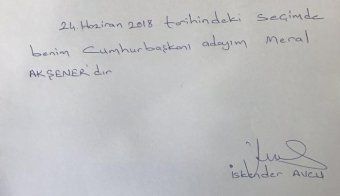 24 Haziran 2018 tarihindeki seçimde
benim Cumhurbaşkanı adayım Meral
AKŞENER'dir
İskender AVCU